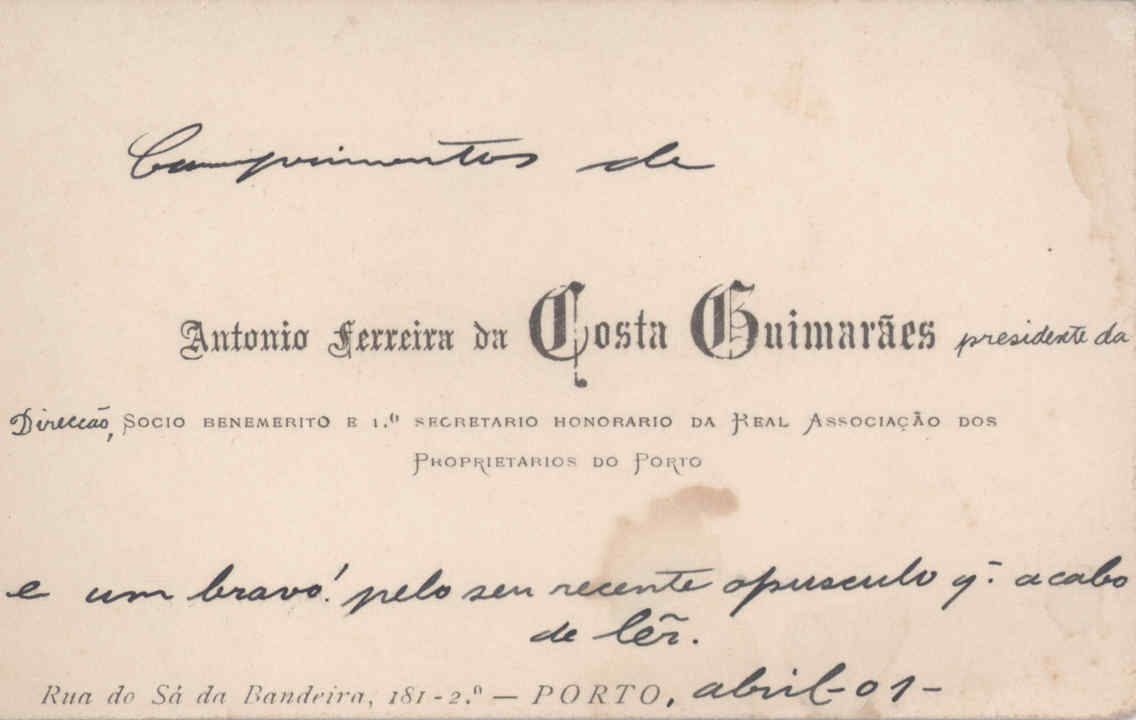 Cumprimentos de
Antonio Ferreira da Costa Guimarães presidente da
Direcção, SOCIO BENEMERITO E 1.º SECRETARIO HONORARIO DA REAL ASSOCIAÇÃO DOS
PROPRIETARIOS DO PORTO
e um bravo! pelo seu recente opusculo q. acabo
de lêr.
Rua do Sá da Bandeira, 181-2.º — PORTO, abril-01-